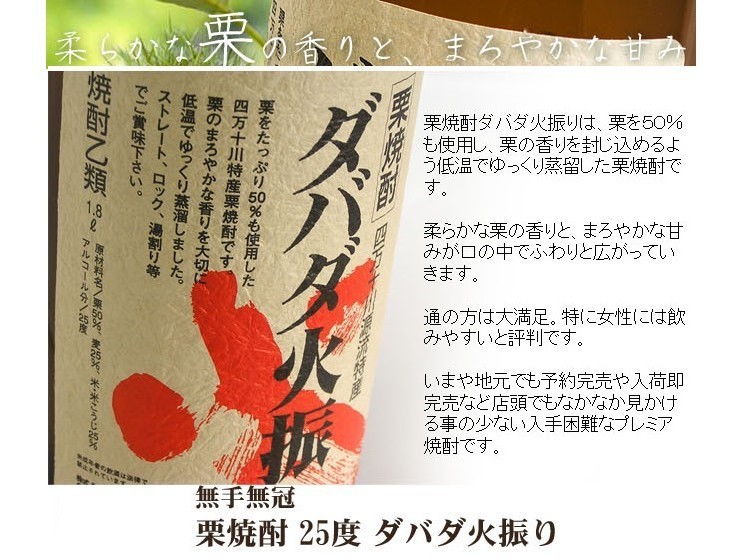 柔らかな栗の香りと、まろやかな甘み
栗焼酎
ダバダ火振
四万十川源流特産
栗をたっぷり50%も使用した
四万十川特産栗焼酎です。
栗のまろやかな香りを大切に
低温でゆっくり蒸溜しました。
ストレート、ロック、湯割り等
でご賞味下さい。
焼酎乙類
1.8ℓ
原材料名/栗50%、麦25%、米・米こうじ25%
アルコール分/25度
未成年者の飲酒は法律で
禁止されています
栗焼酎ダバダ火振りは、栗を50%
も使用し、栗の香りを封じ込めるよ
う低温でゆっくり蒸留した栗焼酎で
す。
柔らかな栗の香りと、まろやかな甘
みが口の中でふわりと広がってい
きます。
通の方は大満足。特に女性には飲
みやすいと評判です。
いまや地元でも予約完売や入荷即
完売など店頭でもなかなか見かけ
る事の少ない入手困難なプレミア
焼酎です。
無手無冠
栗焼酎 25度 ダバダ火振り